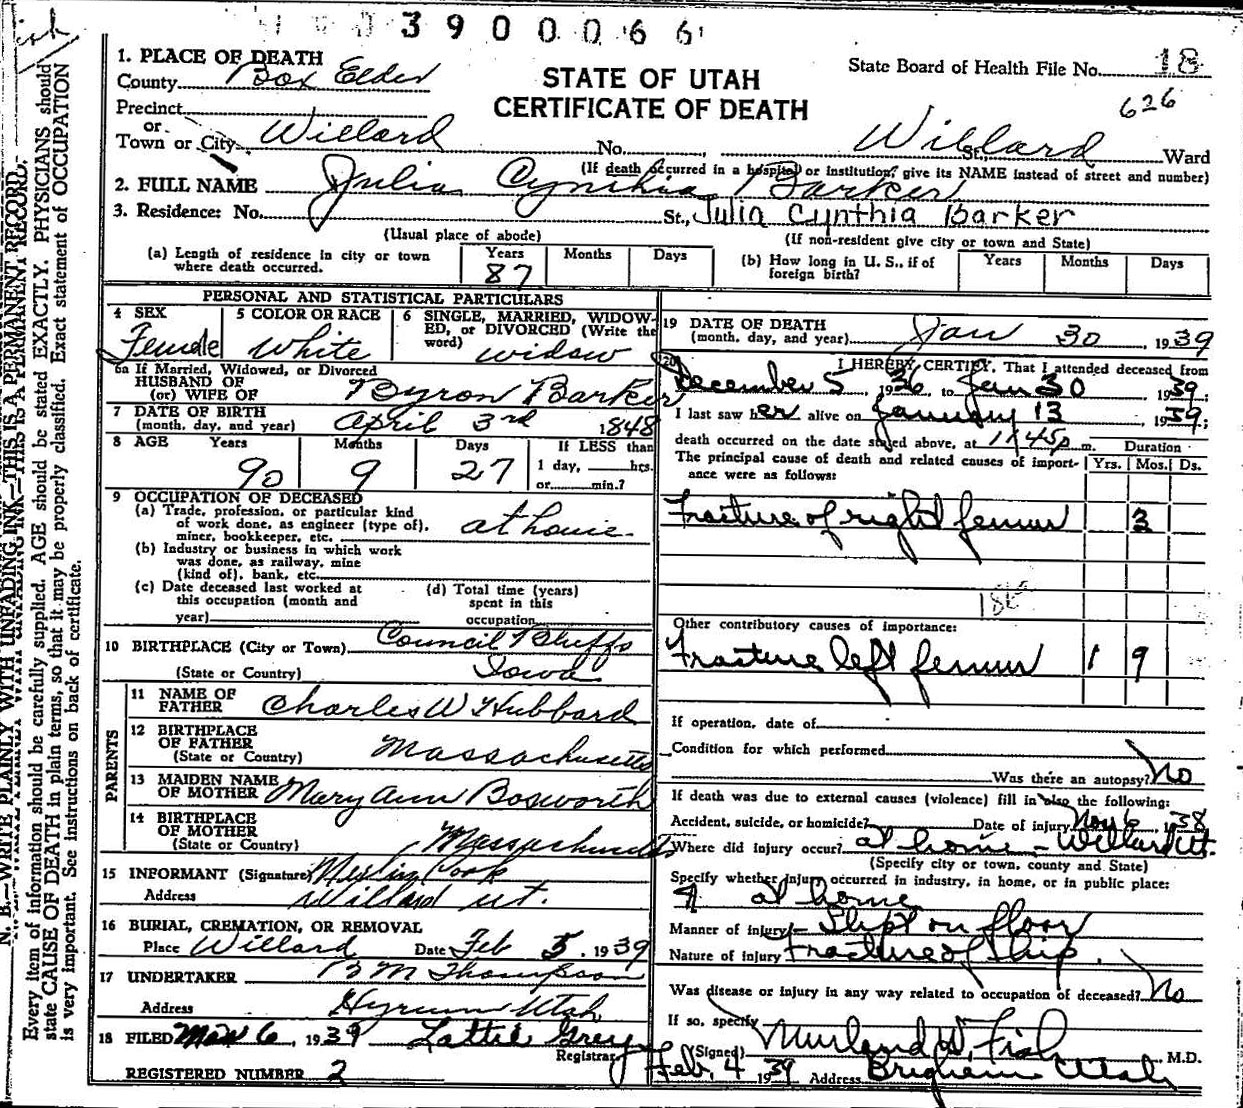 39000661
1. PLACE OF DEATH
County Box Elder
STATE OF UTAH
CERTIFICATE OF DEATH
State Board of Health File No. 18
626
Precinct
or
Town or City Willard No. Willard St., Ward
(If death occurred in a hospital or institution, give its NAME instead of street and number)
2. FULL NAME Julia Cynthia Barker
3. Residence: No. St., Julia Cynthia Barker
(Usual place of abode) (If non-resident give city or town and State)
(a) Length of residence in city or town where death occurred. Years 87 Months Days
(b) How long in U. S., if of foreign birth? Years Months Days
PERSONAL AND STATISTICAL PARTICULARS
4 SEX Female
5 COLOR OR RACE White
6 SINGLE, MARRIED, WIDOWED, or DIVORCED (Write the word) widow
6a If Married, Widowed, or Divorced
HUSBAND OF
(or) WIFE OF Byron Barker
7 DATE OF BIRTH
(month, day, and year) April 3rd 1848
8 AGE Years 90 Months 9 Days 27 If LESS than
1 day, hrs.
or min.?
9 OCCUPATION OF DECEASED
(a) Trade, profession, or particular kind
of work done, as engineer (type of),
miner, bookkeeper, etc. at home
(b) Industry or business in which work
was done, as railway, mine
(kind of), bank, etc.
(c) Date deceased last worked at
this occupation (month and
year)
(d) Total time (years)
spent in this
occupation
10 BIRTHPLACE (City or Town) Council Bluffs
(State or Country) Iowa
PARENTS
11 NAME OF
FATHER Charles W Hubbard
12 BIRTHPLACE
OF FATHER
(State or Country) Massachusetts
13 MAIDEN NAME
OF MOTHER Mary Ann Bosworth
14 BIRTHPLACE
OF MOTHER
(State or Country) Massachusetts
15 INFORMANT (Signature) Cook
Address Willard Ut.
16 BURIAL, CREMATION, OR REMOVAL
Place Willard Date Feb 5, 1939
17 UNDERTAKER B M Thompson
Address Hyrum Utah
18 FILED Mar 6, 1939 Lottie Grey
Registrar
REGISTERED NUMBER 2
19 DATE OF DEATH
(month, day, and year) Jan 30, 1939
20 I HEREBY CERTIFY, That I attended deceased from
December 5, 1936, to Jan 30 1939;
I last saw her alive on January 13, 1939;
death occurred on the date stated above, at 11:45 p m.
The principal cause of death and related causes of importance were as follows:
Duration
Yrs. Mos. Ds.
Fracture of right femur 3
186
Other contributory causes of importance:
Fracture left femur 1 9
If operation, date of
Condition for which performed
Was there an autopsy? No
If death was due to external causes (violence) fill in also the following:
Accident, suicide, or homicide? Date of injury Nov 6, 1938
Where did injury occur? at home - Willard Ut.
(Specify city or town, county and State)
Specify whether injury occurred in industry, in home, or in public place:
at home
Manner of injury - Slipt on floor
Nature of injury Fracture of hip.
Was disease or injury in any way related to occupation of deceased? No
If so, specify
(Signed) W. Fish M.D.
Feb. 4 1939 Address Brigham Utah
N. B.—WRITE PLAINLY WITH UNFADING INK—THIS IS A PERMANENT RECORD.
Every item of information should be carefully supplied. AGE should be stated EXACTLY. PHYSICIANS should
state CAUSE OF DEATH in plain terms, so that it may be properly classified. Exact statement of OCCUPATION
is very important. See instructions on back of certificate.